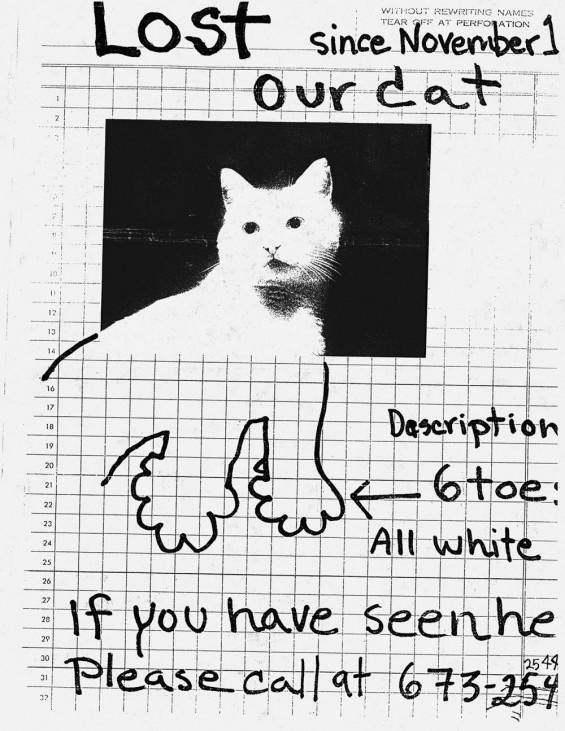 WITHOUT REWRITING NAMES
TEAR OFF AT PERFORATION
Lost since November 1
our cat
1
2
10
11
12
13
14
16
17
18
Description
19
20
21
6 toe
22
23
24
All white
25
26
27
If you have seen he
28
29
30
31
Please call at 673-254
32